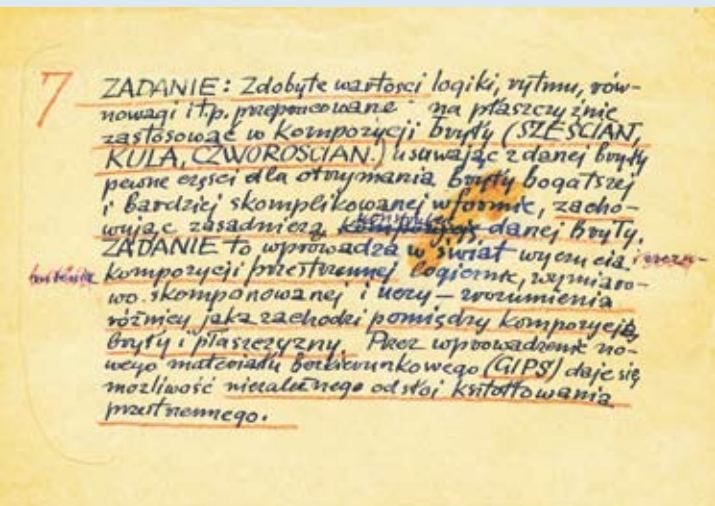 7 ZADANIE: Zdobyte wartości logiki, rytmu, rów-
nowagi itp. przepracowane na płaszczyźnie
zastosować w kompozycji bryły (SZEŚCIAN,
KULA, CZWOROŚCIAN.) usuwając z danej bryły
pewne części dla otrzymania bryły bogatszej
i bardziej skomplikowanej w formie, zacho-
wując zasadniczą konstrukcję danej bryły.
ZADANIE to wprowadza w świat wyczucia
kompozycji przestrzennej logicznie, wymiaro-
wo skomponowanej i uczy – zrozumienia
różnicy jaka zachodzi pomiędzy kompozycją
bryły i płaszczyzny. Przez wprowadzenie no-
wego materiału bezkierunkowego (GIPS) daje się
możliwość niezależnego od słoi kształtowania
przestrzennego.